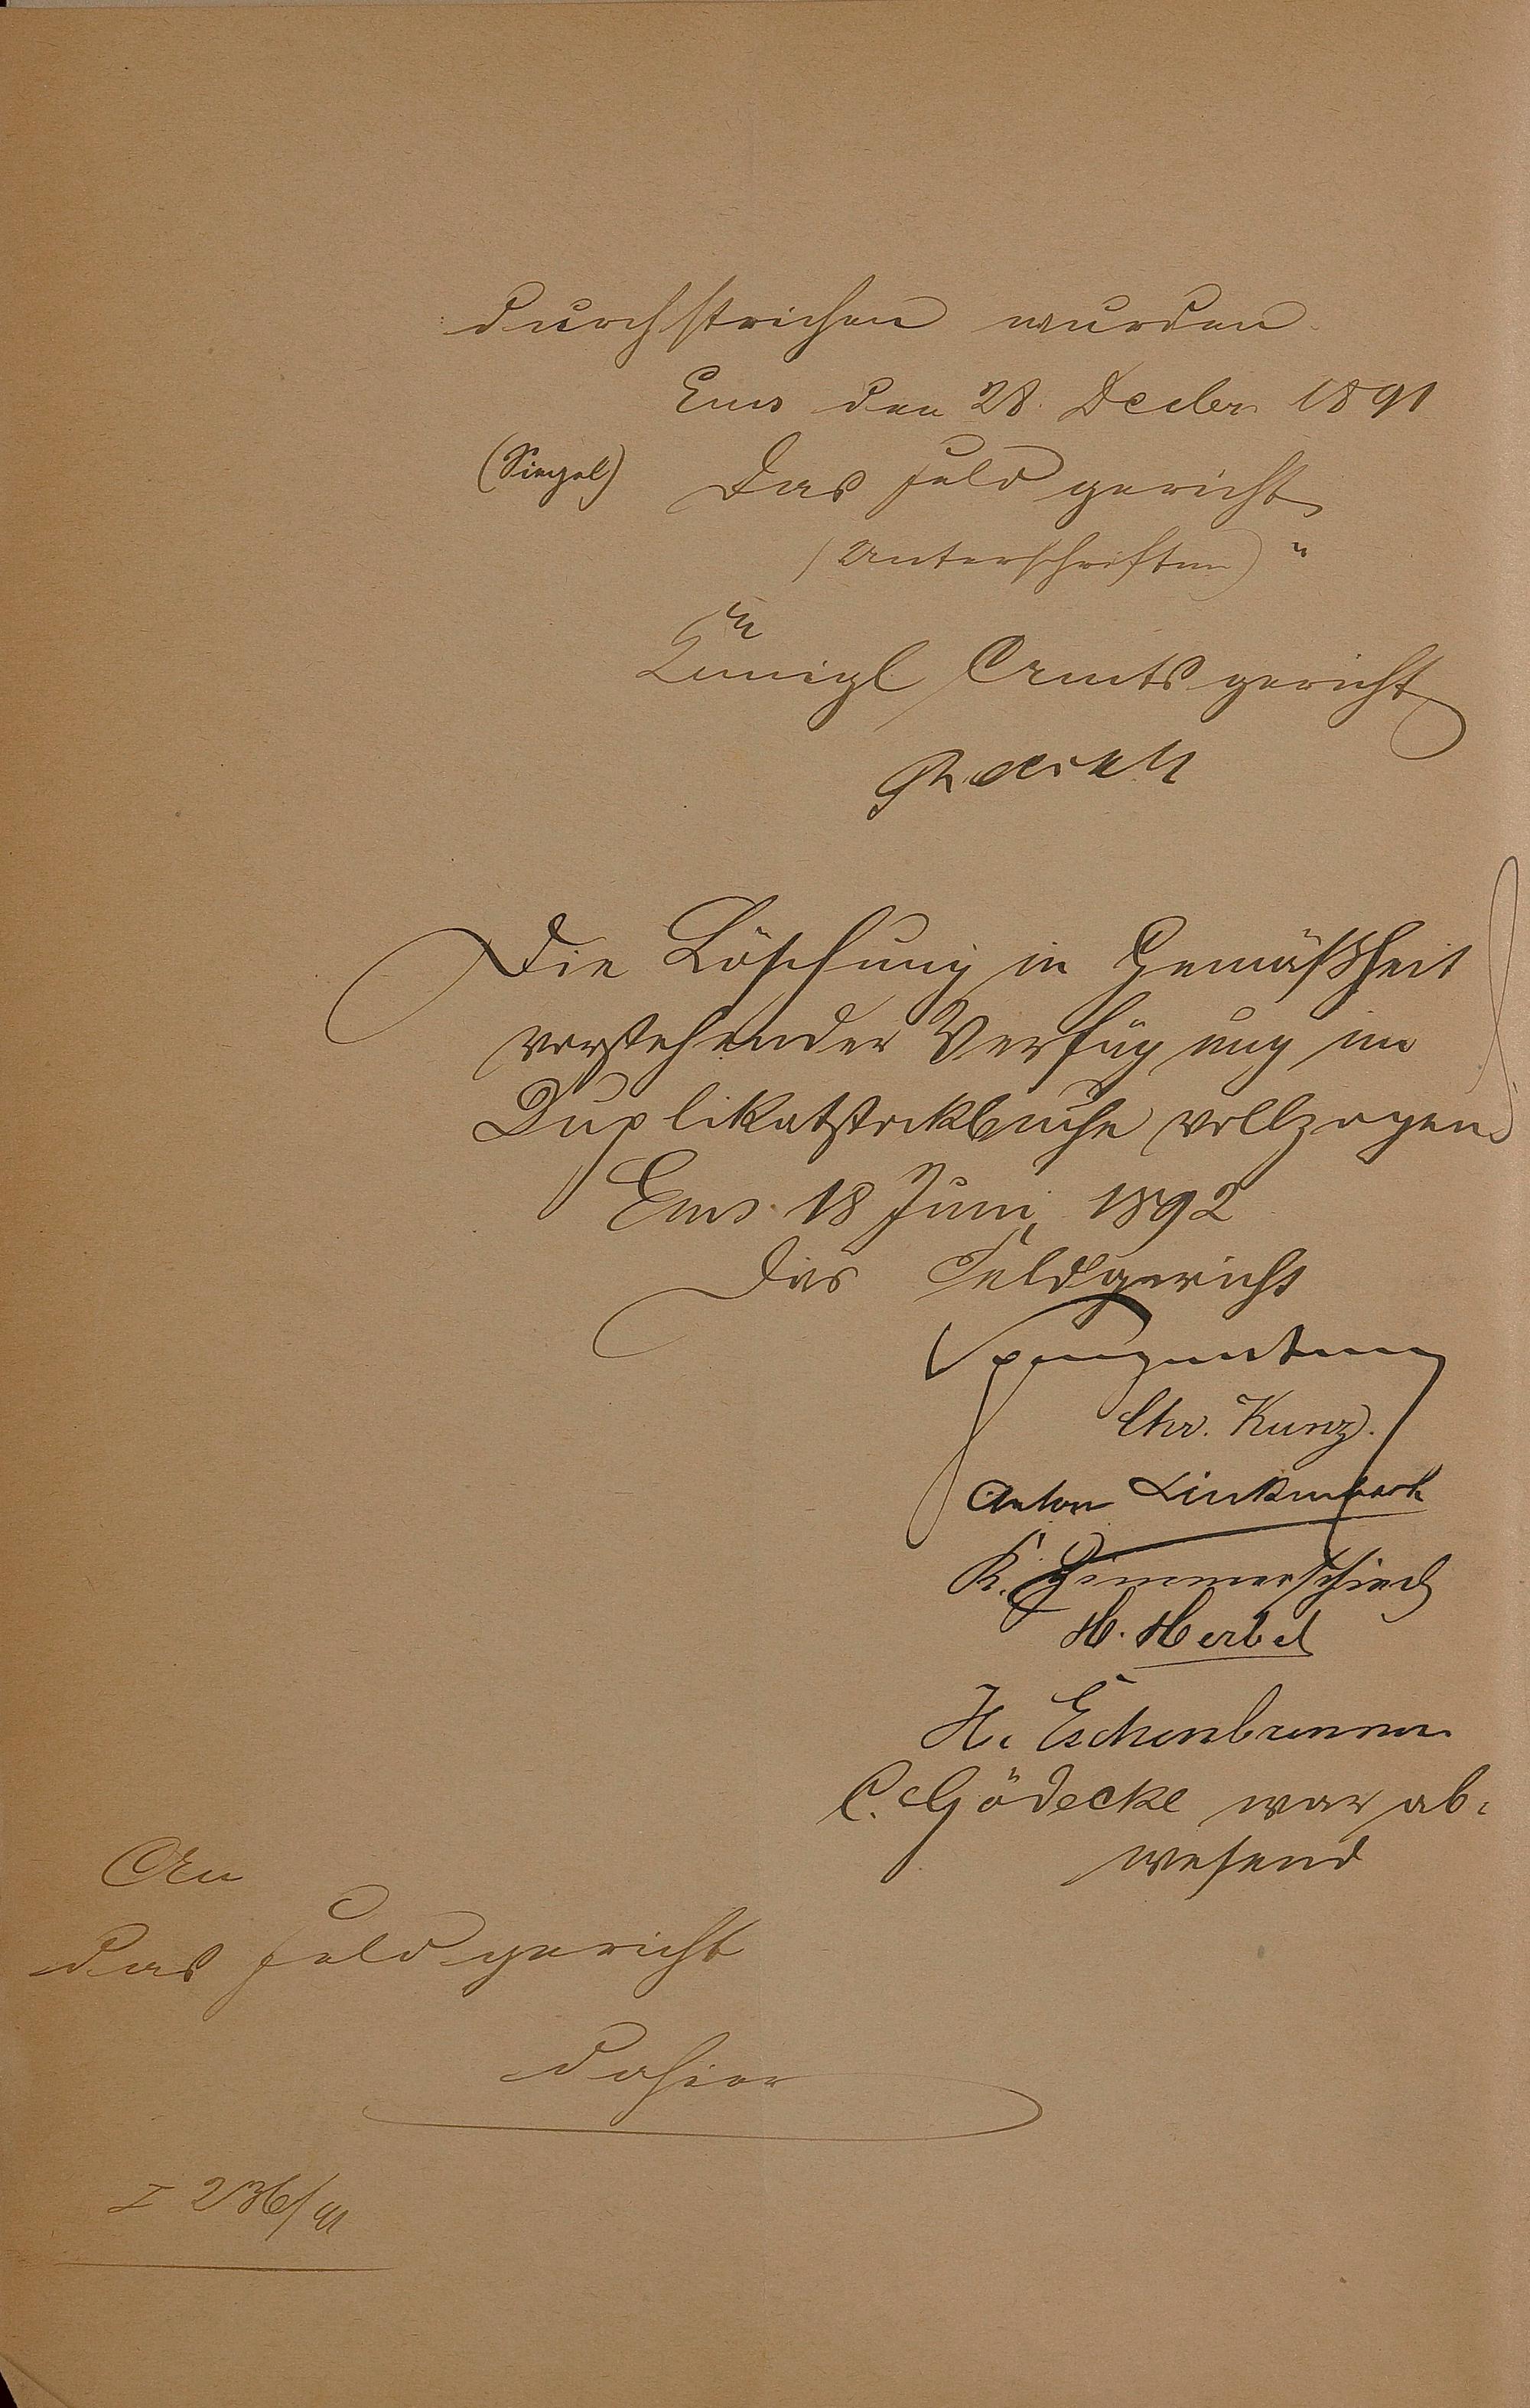 durchstrichen wurden.
Ems den 28. Decbr. 1891
(Siegel) Das Feldgericht
(Unterschriften) "
Königl Amtsgericht
Die Löschung in Gemäßheit
vorstehender Verfügung im
Duplikatstockbuche vollzogen.
Ems. 18 Juni 1892
Das Feldgericht
Chr. Kunz.
Anton Linkenbach
K. Zimmerschied
H. Herbel
H. Eschenbrenner
C. Gödecke war ab-
wesend
An
das Feldgericht
dahier
I 236/91